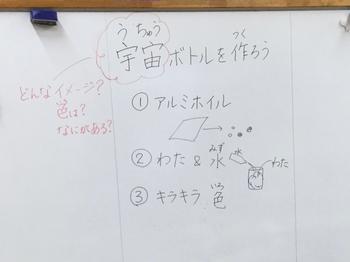 うちゅう つく
宇宙ボトルを作ろう
どんなイメージ?
色は?
なにがある?
① アルミホイル
みず 水 わた
② わた & 水
いろ
③ キラキラ 色